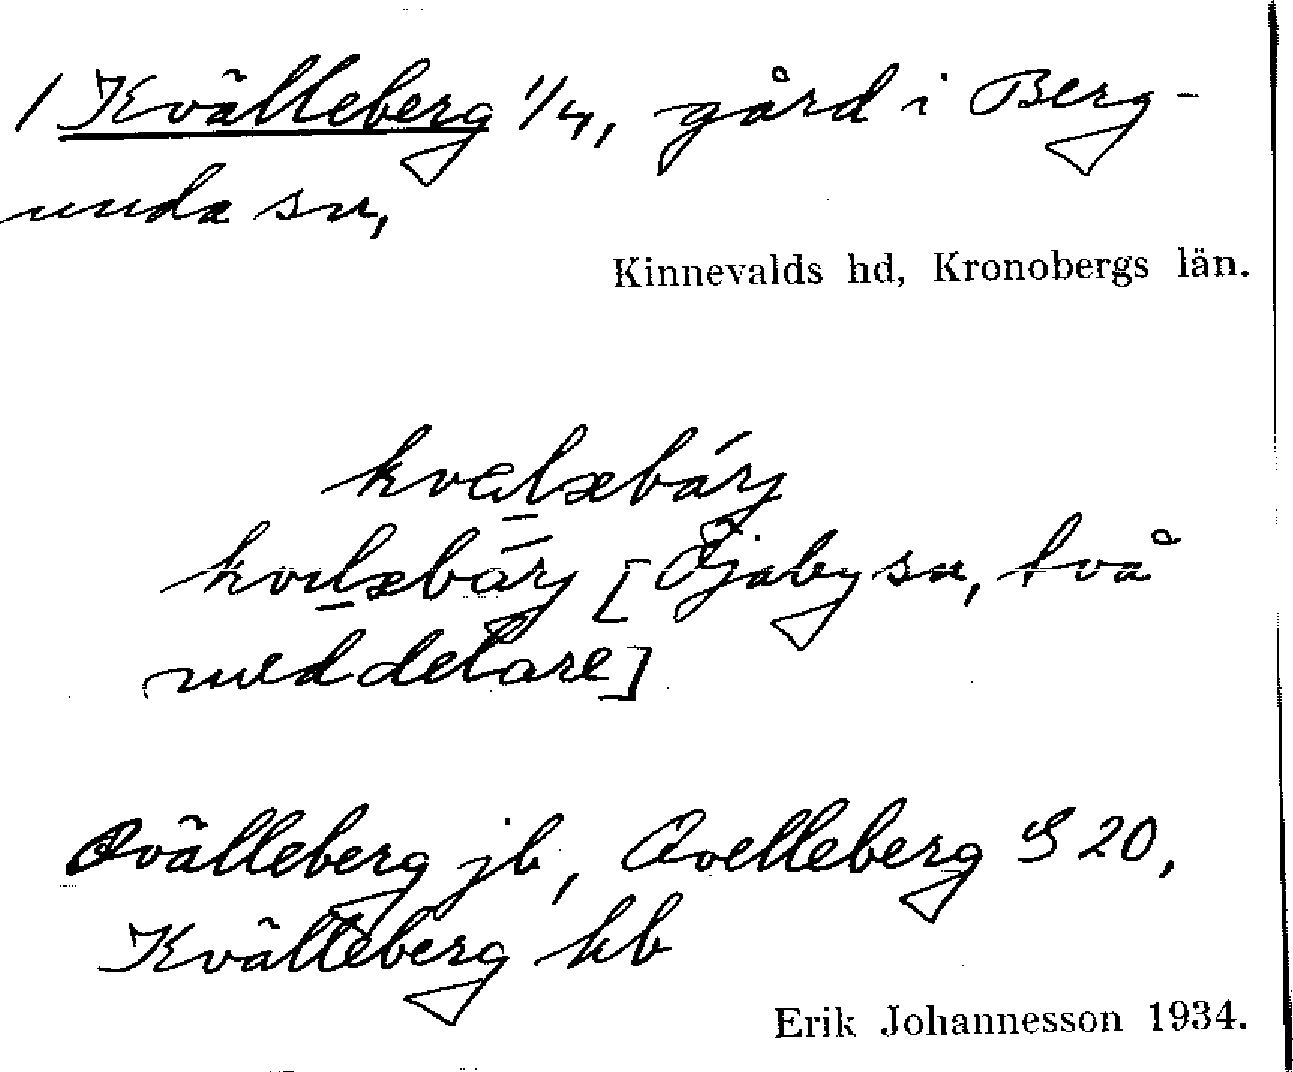 / Kvälleberg 1/4, gård i Berg-
unda sn,
Kinnevalds hd, Kronobergs län.
kvalxbárj
[Öjaby sn, två
meddelare]
Qvälleberg jb, Qvelleberg S 20,
Kvälleberg kb
Erik Johannesson 1934.